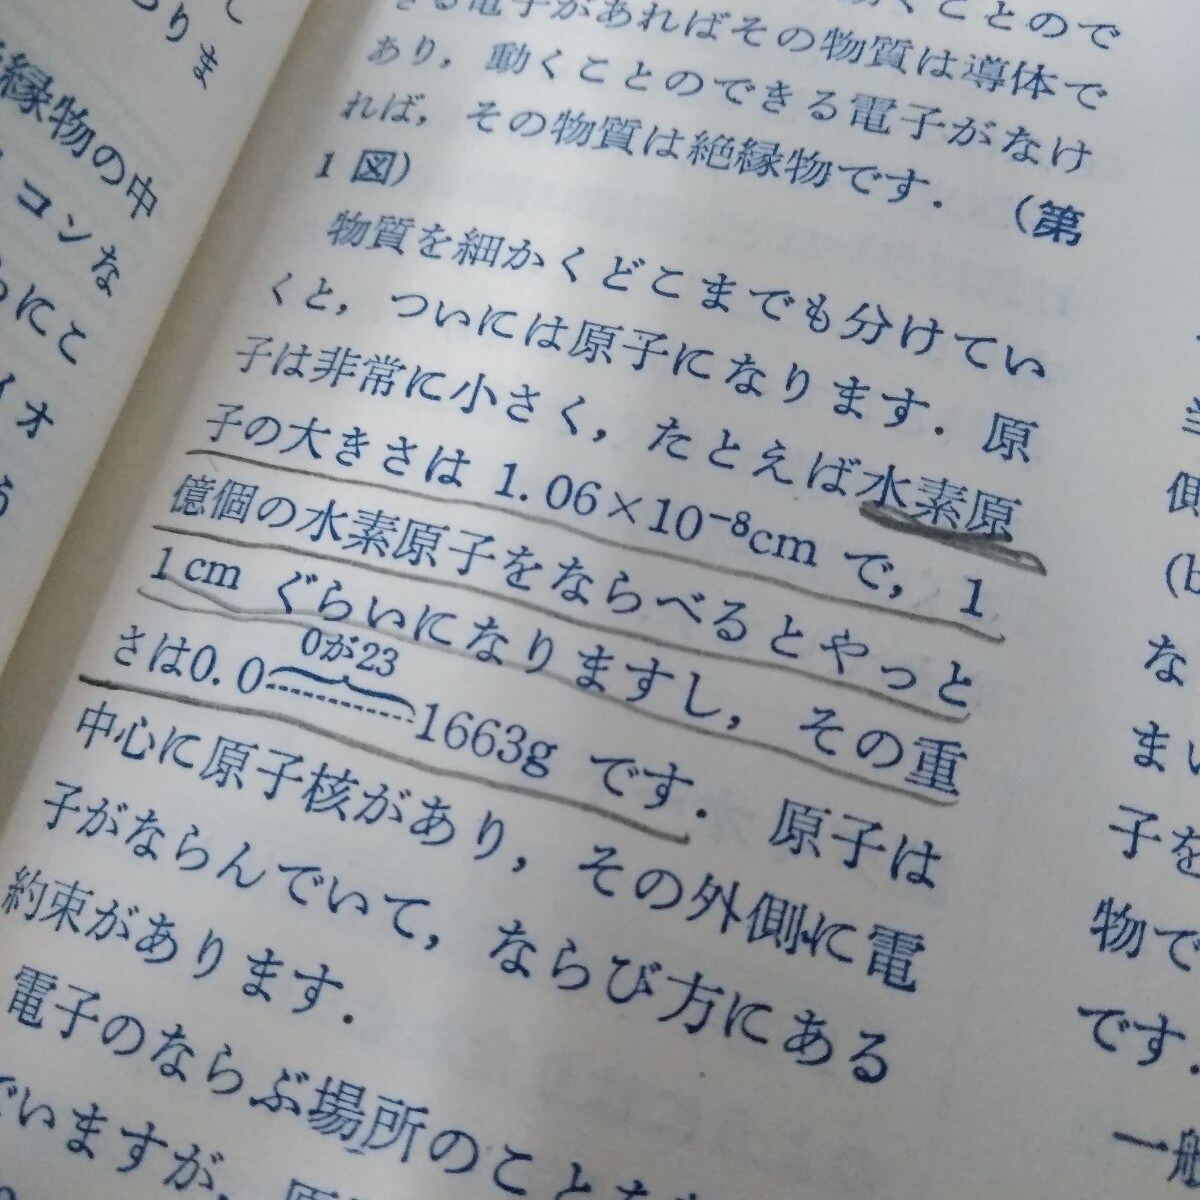 りま
縁物の中
コンな
にこ
イオ
くことので
きる電子があればその物質は導体で
あり，動くことのできる電子がなけ
れば，その物質は絶縁物です．（第
1 図）
物質を細かくどこまでも分けてい
くと，ついには原子になります．原
子は非常に小さく，たとえば水素原
子の大きさは 1.06×10⁻⁸cm で，1
億個の水素原子をならべるとやっと
1 cm ぐらいになりますし，その重
0が23
さは0.0 1663g です．原子は
中心に原子核があり，その外側に電
子がならんでいて，ならび方にある
約束があります．
電子のならぶ場所のこと
いますが，
な
ま
子を
物で
です．
一般